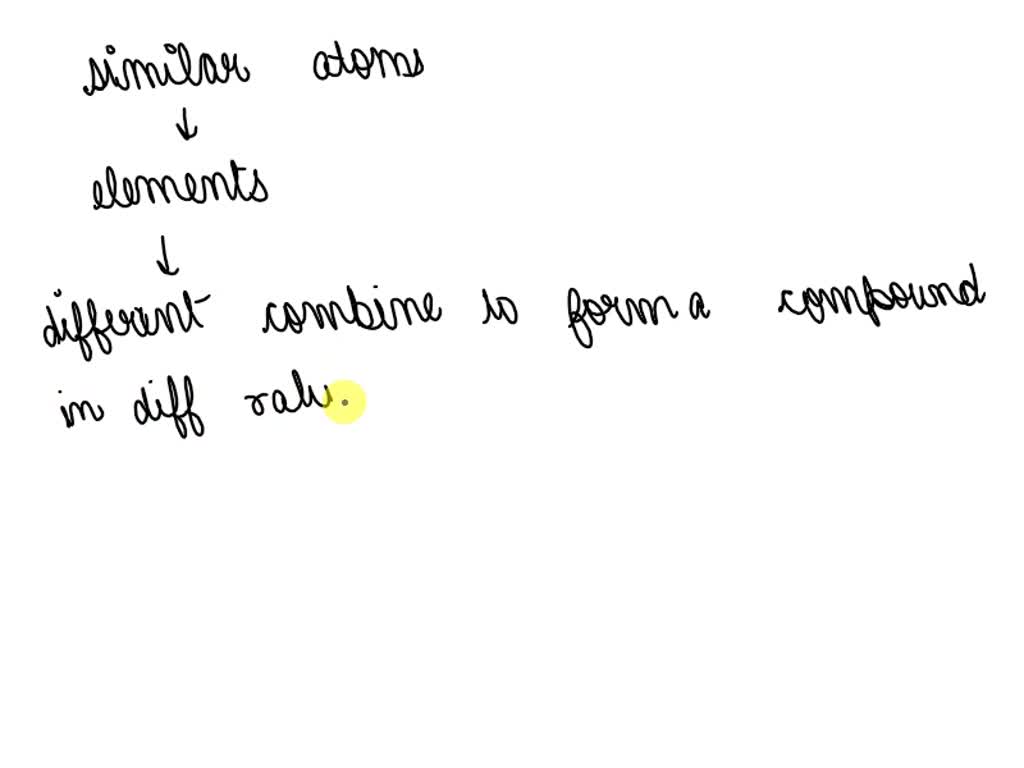 similar atoms
↓
elements
↓
different combine to form a compound
in diff